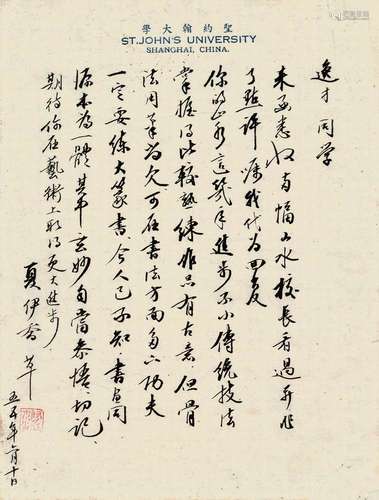 學大翰約聖
ST. JOHN'S UNIVERSITY
SHANGHAI, CHINA.
逸才同学
来函悉收有幅山水校长看過并作
了点评嘱我代为回复
你的山水這几年進步不小傳統技法
掌握得比較熟練作品有古意但骨
法用筆尚欠可在書法方面多下功夫
一定要练大篆書今人已不知書畫同
源本为一體其中玄妙自當参悟切記
期待你在藝術上取得更大進步
夏伊喬草
五五年六月十日